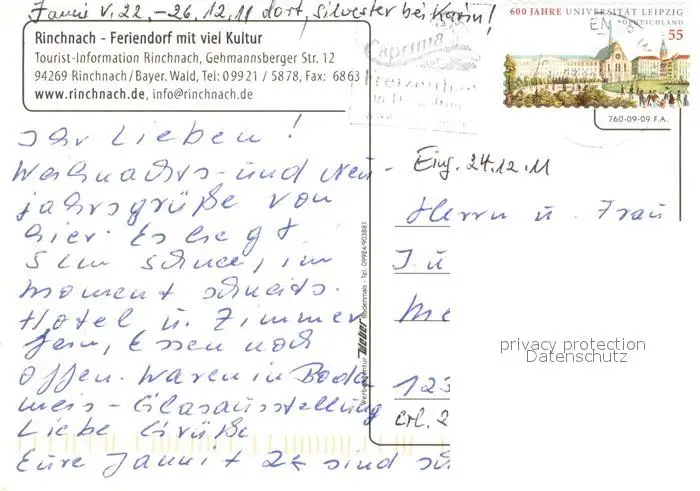 Janni v. 22. - 26.12.11 dort, Silvester bei Karin!
Rinchnach - Feriendorf mit viel Kultur
Tourist-Information Rinchnach, Gehmannsberger Str. 12
94269 Rinchnach/Bayer. Wald, Tel: 09921 / 5878, Fax: 6863
www.rinchnach.de, info@rinchnach.de
600 JAHRE UNIVERSITÄT LEIPZIG
DEUTSCHLAND
55
760-09-09 F.A.
Ihr Lieben!
Weihnachts- und Neu-
jahrsgrüße von
hier. Es liegt
5 cm Schnee, im
Moment schneits.
Hotel u. Zimmer
fein, Essen noch
offen. Waren in Boden
mais - Glasausstellung
Liebe Grüße
Eure Janni + 2 sind
Werbeagentur Weber Bodenmais - Tel. 09924/903881
Eing. 24.12.11
Herrn u. Frau
I u
Me
123
erl. 2
privacy protection
Datenschutz